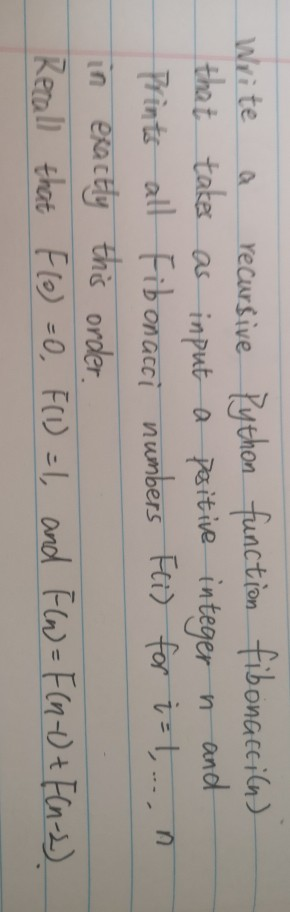 Write a recursive Python function fibonacci(n)
that takes as input a positive integer n and
Prints all Fibonacci numbers F(i) for i=1,..., n
in exactly this order.
Recall that F(0)=0, F(1)=1, and F(n)=F(n-1)+F(n-2).